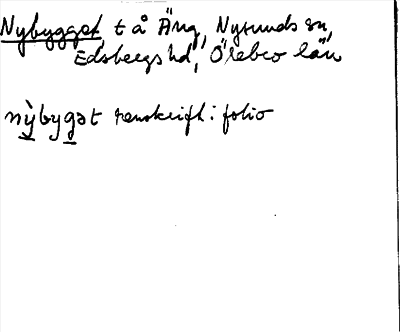 Nybygget, t å Äng, Nysunds sn,
Edsbergs hd, Örebro län
nỳbygət renskrift i folio